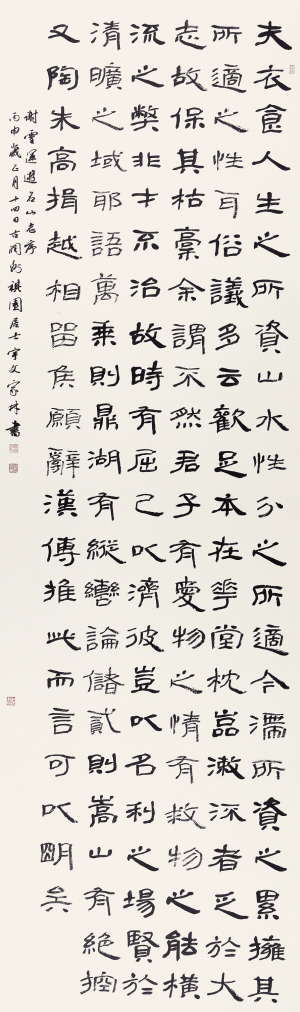 夫衣食人生之所資山水性分之所適今滯所資之累擁其
所適之性耳俗議多云歡足本在華堂枕嵓漱流者乏於大
志故保其枯槀余謂不然君子有愛物之情有救物之能橫
流之弊非才不治故時有屈己以濟彼豈以名利之場賢於
清曠之域耶語萬乘則鼎湖有縱轡論儲貳則嵩山有絕控
又陶朱高揖越相留侯願辭漢傅推此而言可以明矣
謝靈運遊名山志序
丙申歲正月十四日古潤州祺園居士宇文家林書